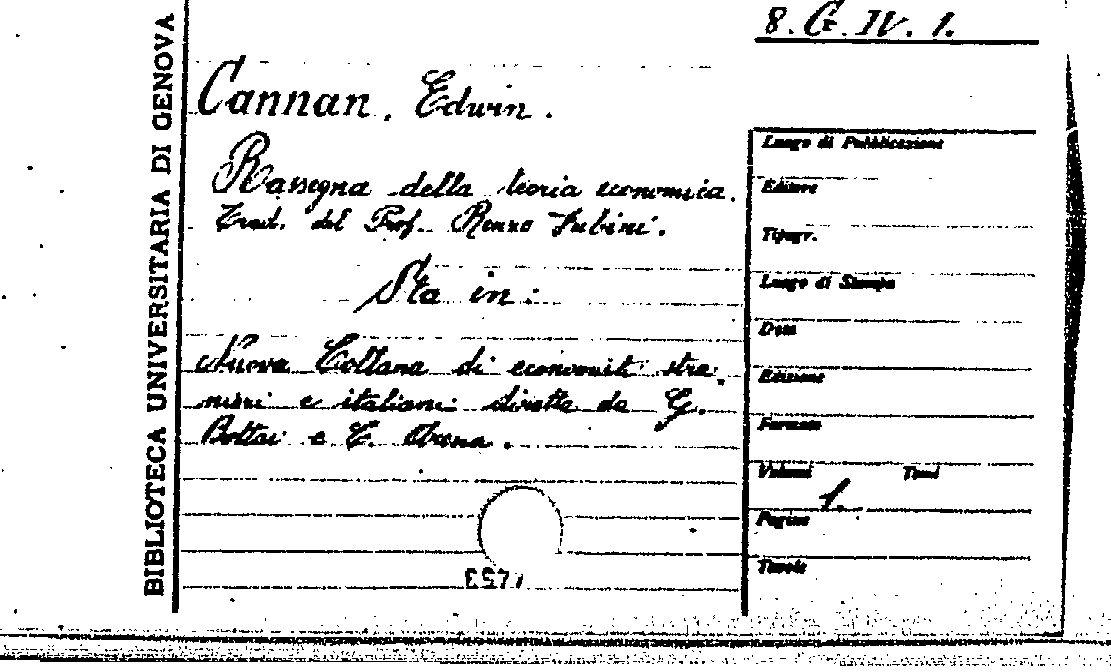 BIBLIOTECA UNIVERSITARIA DI GENOVA
8. G. IV. 1.
Cannan, Edwin.
Rassegna della teoria economica.
Trad. del Prof. Renzo Fubini.
Sta in:
Nuova Collana di economisti stra
nieri e italiani diretta da G.
Bottai e C. Arena.
Luogo di Pubblicazione
Editore
Tipogr.
Luogo di Stampa
Data
Edizione
Formato
Volumi Tomi
1.
Pagine
Tavole